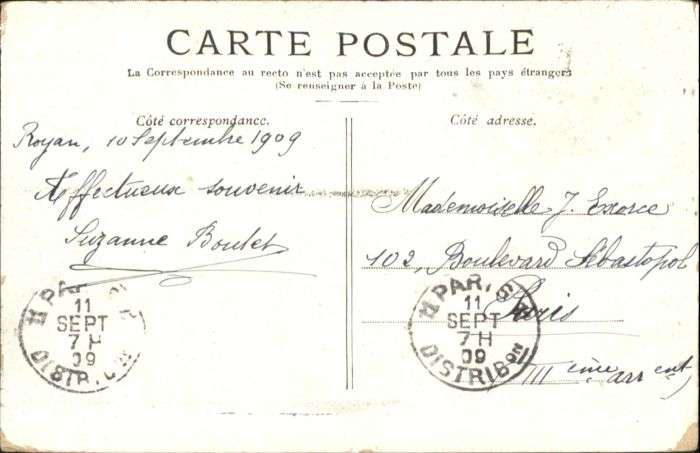 CARTE POSTALE
La Correspondance au recto n'est pas acceptée par tous les pays étrangers
(Se renseigner à la Poste)
Côté correspondance.
Royan, 10 Septembre 1909
Affectueux souvenir
Suzanne Boutet
Côté adresse.
Mademoiselle J. Exorce
102, Boulevard Sébastopol
Paris
III ème arr ent
PARIS
11
SEPT
7 H
09
DISTRIB
PARIS
11
SEPT
7 H
09
DISTRIBON